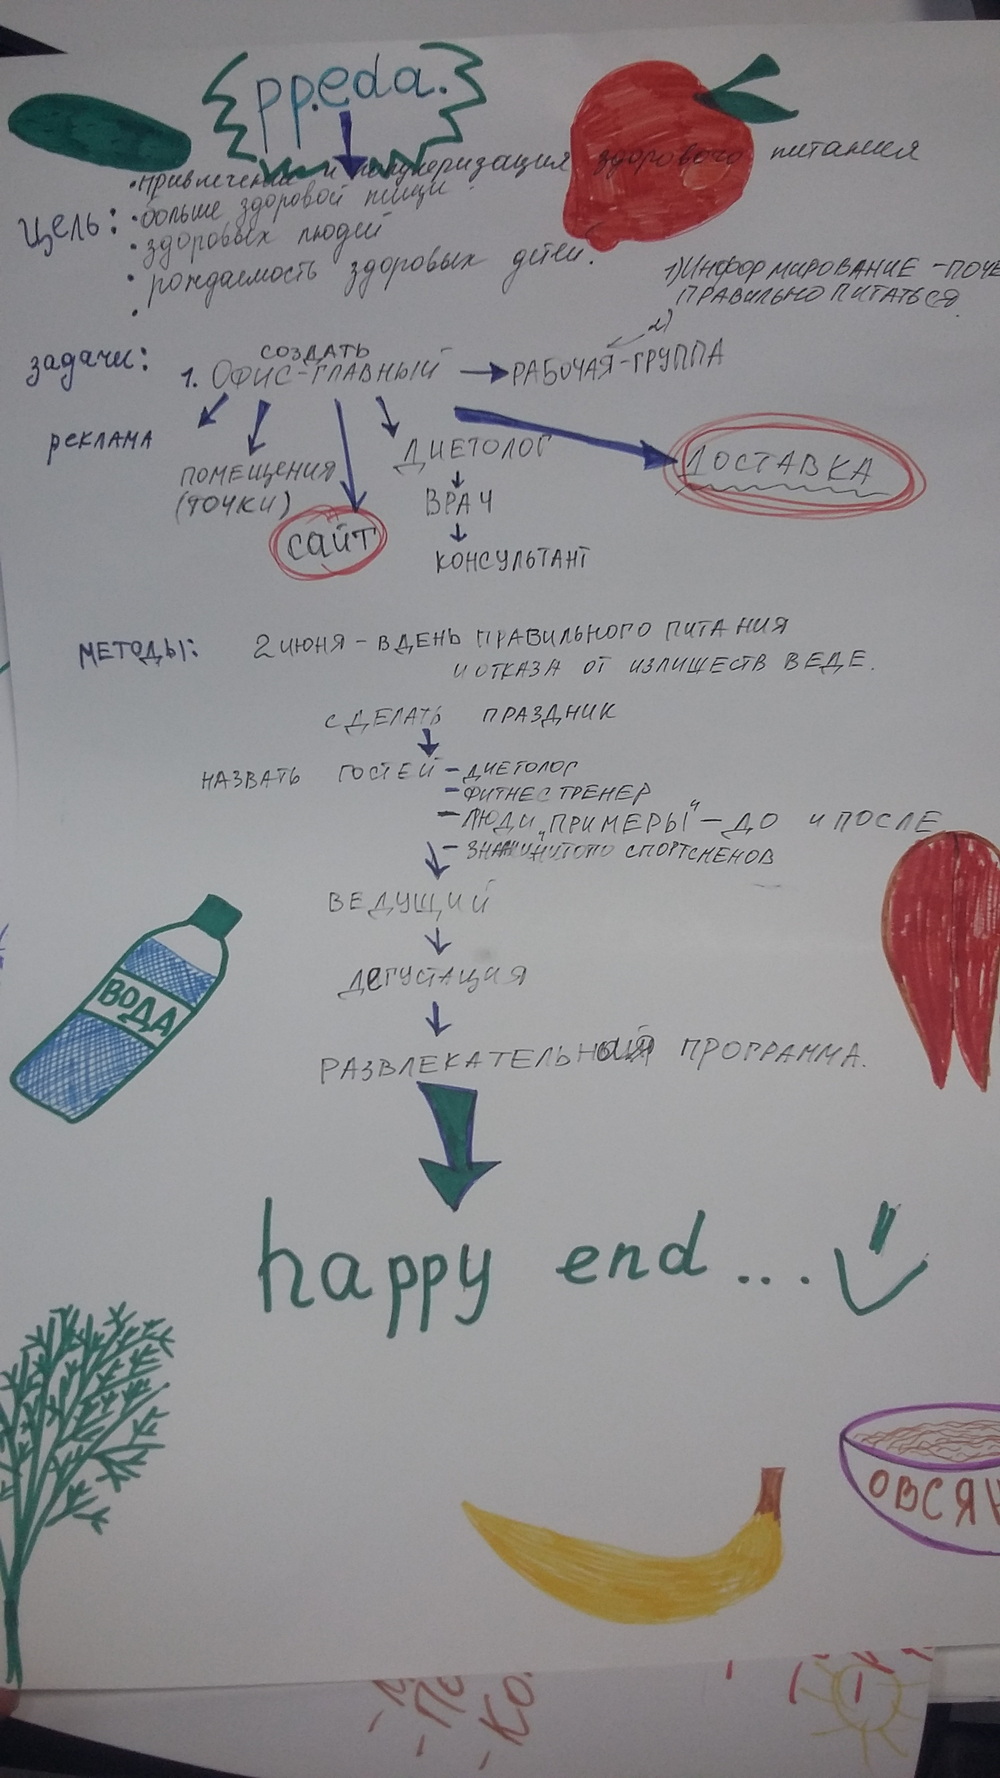 pp.eda.
• привлечение и популяризация здорового питания
Цель: • больше здоровой пищи
• здоровых людей
• рождаемость здоровых детей.
1) Информирование - поче
правильно питаться.
2)
Задачи: 1. создать
офис-главный → рабочая-группа
реклама
помещения
(точки)
сайт
диетолог
врач
консультант
доставка
Методы: 2 июня - в день правильного питания
и отказа от излишеств в еде.
сделать праздник
назвать гостей - диетолог
- фитнес тренер
- люди "примеры" - до и после
- спортсменов
ведущий
дегустация
развлекательная программа.
happy end...
вода
овся
- По
- Ко.